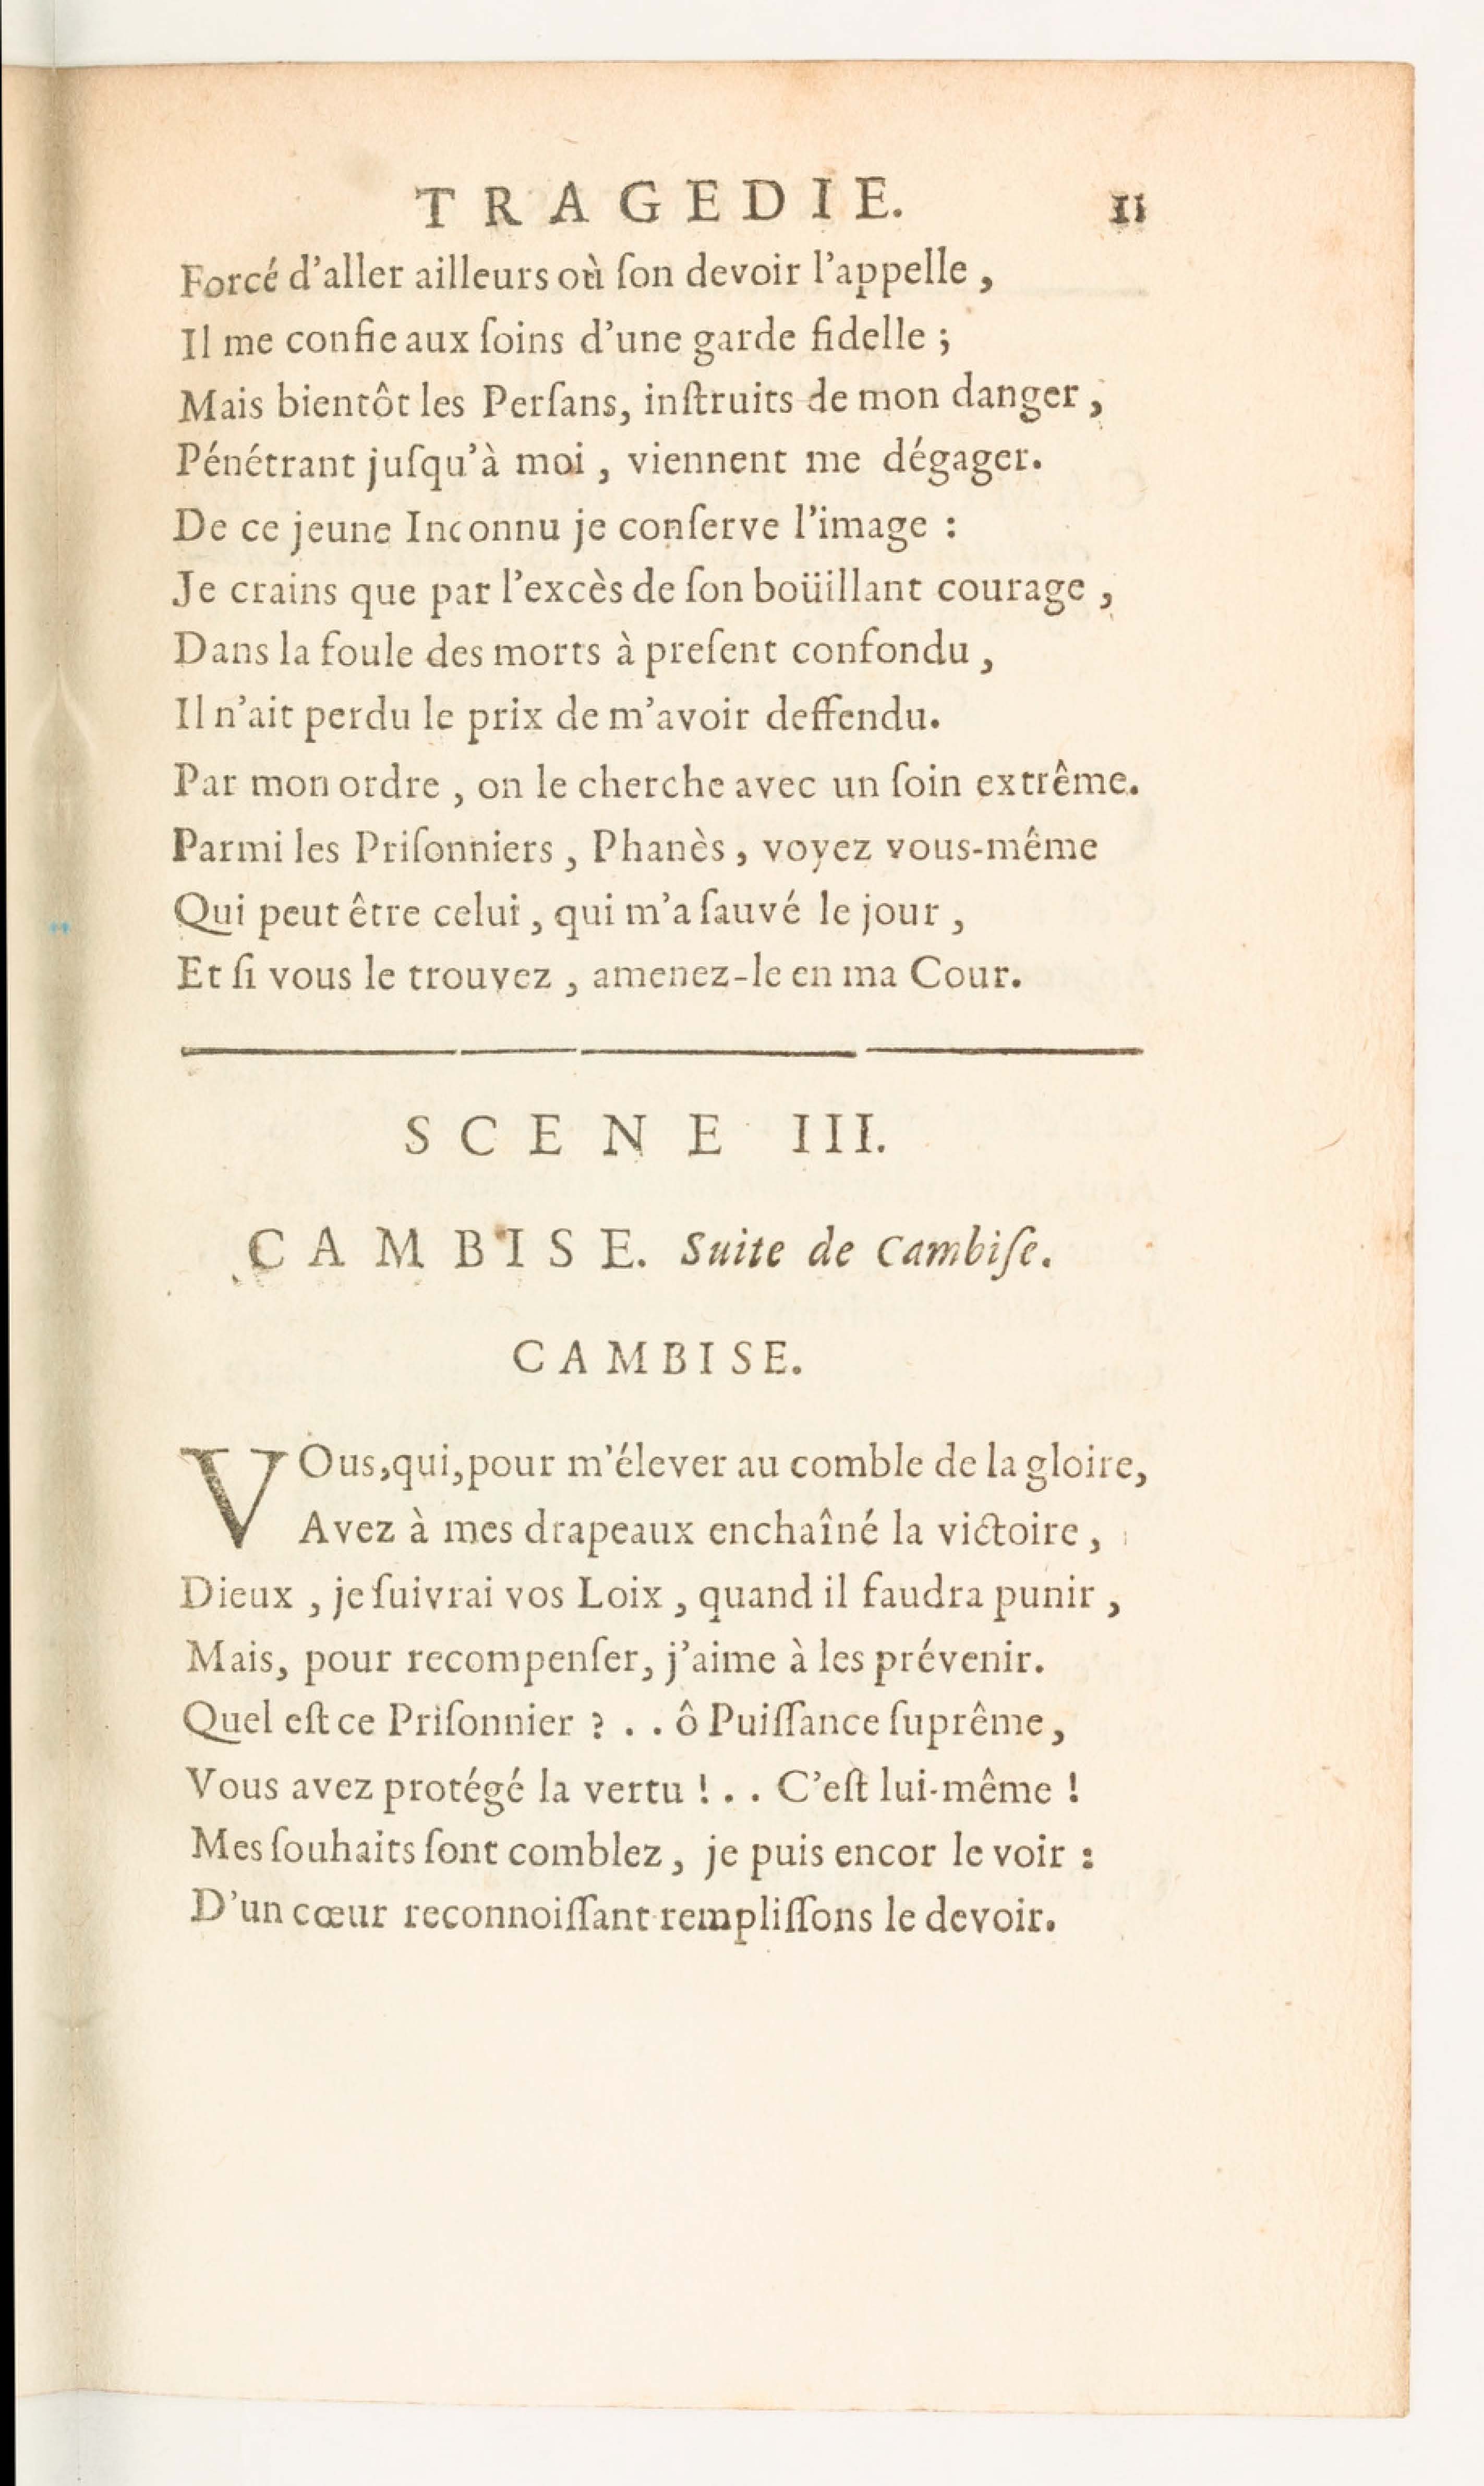 TRAGEDIE. 11
Forcé d'aller ailleurs où ſon devoir l'appelle,
Il me confie aux ſoins d'une garde fidelle;
Mais bientôt les Perſans, inſtruits de mon danger,
Pénétrant juſqu'à moi, viennent me dégager.
De ce jeune Inconnu je conſerve l'image:
Je crains que par l'excès de ſon boüillant courage,
Dans la foule des morts à preſent confondu,
Il n'ait perdu le prix de m'avoir deffendu.
Par mon ordre, on le cherche avec un ſoin extrême.
Parmi les Priſonniers, Phanès, voyez vous-même
Qui peut être celui, qui m'a ſauvé le jour,
Et ſi vous le trouvez, amenez-le en ma Cour.
SCENE III.
CAMBISE. Suite de Cambiſe.
CAMBISE.
VOus, qui, pour m'élever au comble de la gloire,
Avez à mes drapeaux enchaîné la victoire,
Dieux, je ſuivrai vos Loix, quand il faudra punir,
Mais, pour recompenſer, j'aime à les prévenir.
Quel eſt ce Priſonnier ? . . ô Puiſſance ſuprême,
Vous avez protégé la vertu ! . . C'eſt lui-même !
Mes ſouhaits ſont comblez, je puis encor le voir :
D'un cœur reconnoiſſant rempliſſons le devoir.